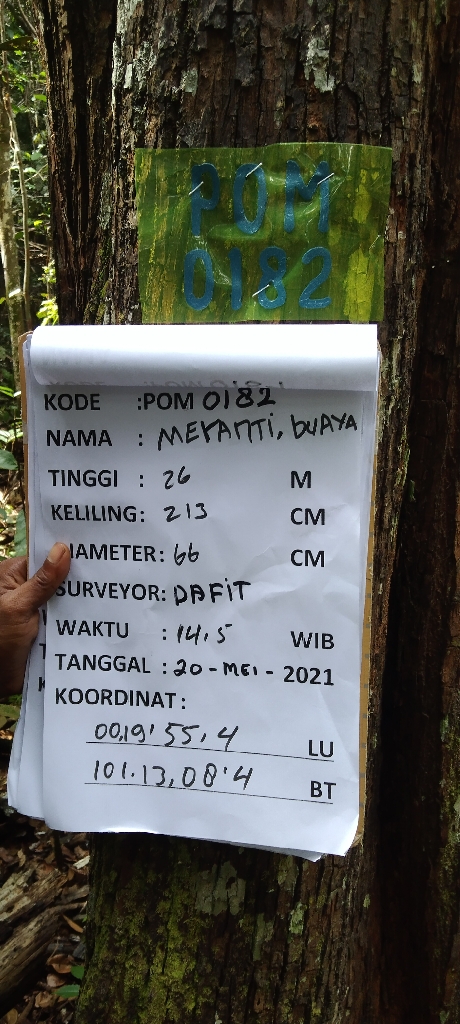 POM
0182
KODE :POM 0182
NAMA : MERANTI, BUAYA
TINGGI : 26 M
KELILING: 213 CM
DIAMETER: 66 CM
SURVEYOR: DAFIT
WAKTU : 14.5 WIB
TANGGAL : 20 - MEI - 2021
KOORDINAT:
00,19'55,4 LU
101.13,08'4 BT